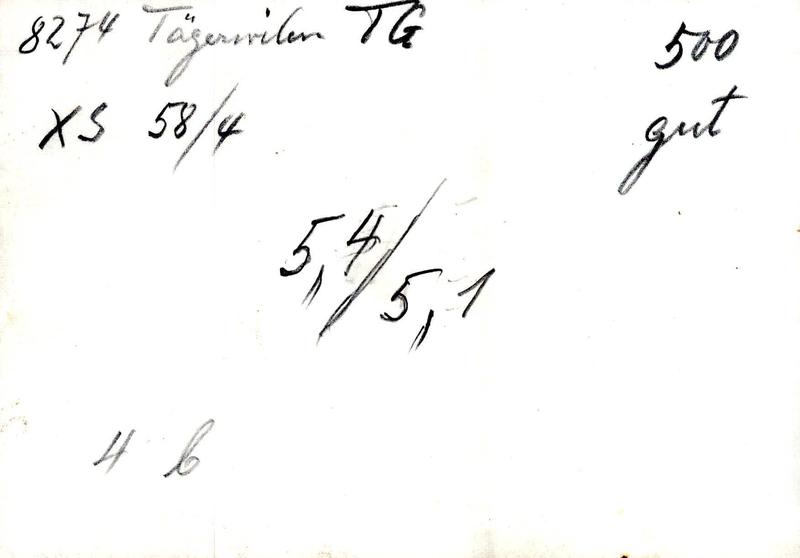 8274 Tägerwilen TG 500
XS 58/4 gut
5,4/5,1
4 b